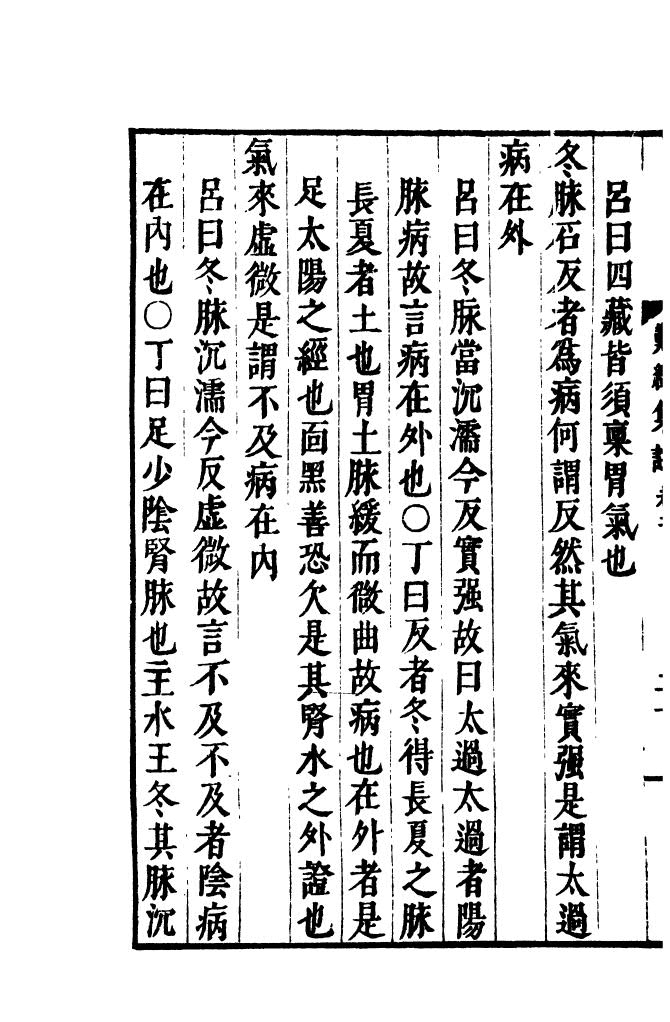 呂曰四藏皆須稟胃氣也
冬脉石反者為病何謂反然其氣來實强是謂太過
病在外
呂曰冬脉當沉濡今反實强故曰太過太過者陽
脉病故言病在外也○丁曰反者冬得長夏之脉
長夏者土也胃土脉緩而微曲故病也在外者是
足太陽之經也面黑善恐欠是其腎水之外證也
氣來虛微是謂不及病在內
呂曰冬脉沉濡今反虛微故言不及不及者陰病
在內也○丁曰足少陰腎脉也主水王冬其脉沉